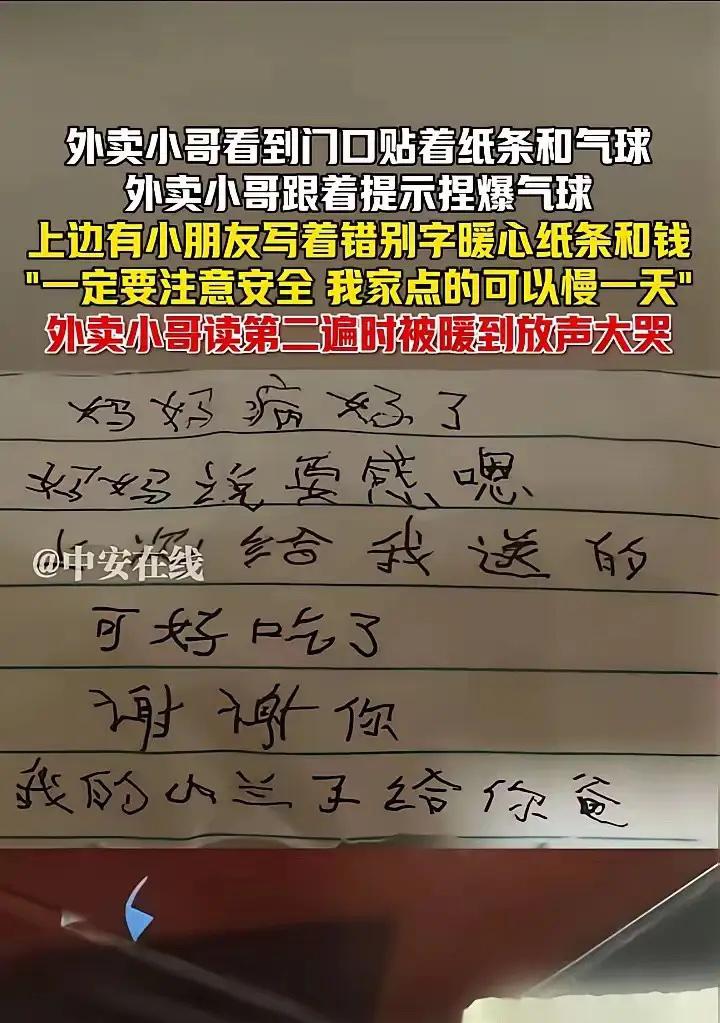 外卖小哥看到门口贴着纸条和气球
外卖小哥跟着提示捏爆气球
上边有小朋友写着错别字暖心纸条和钱
"一定要注意安全 我家点的可以慢一天"
外卖小哥读第二遍时被暖到放声大哭
妈妈病好了
妈妈说要感嗯
@中安在线
给我送的
可好吃了
谢谢你
我的山兰子给你爸